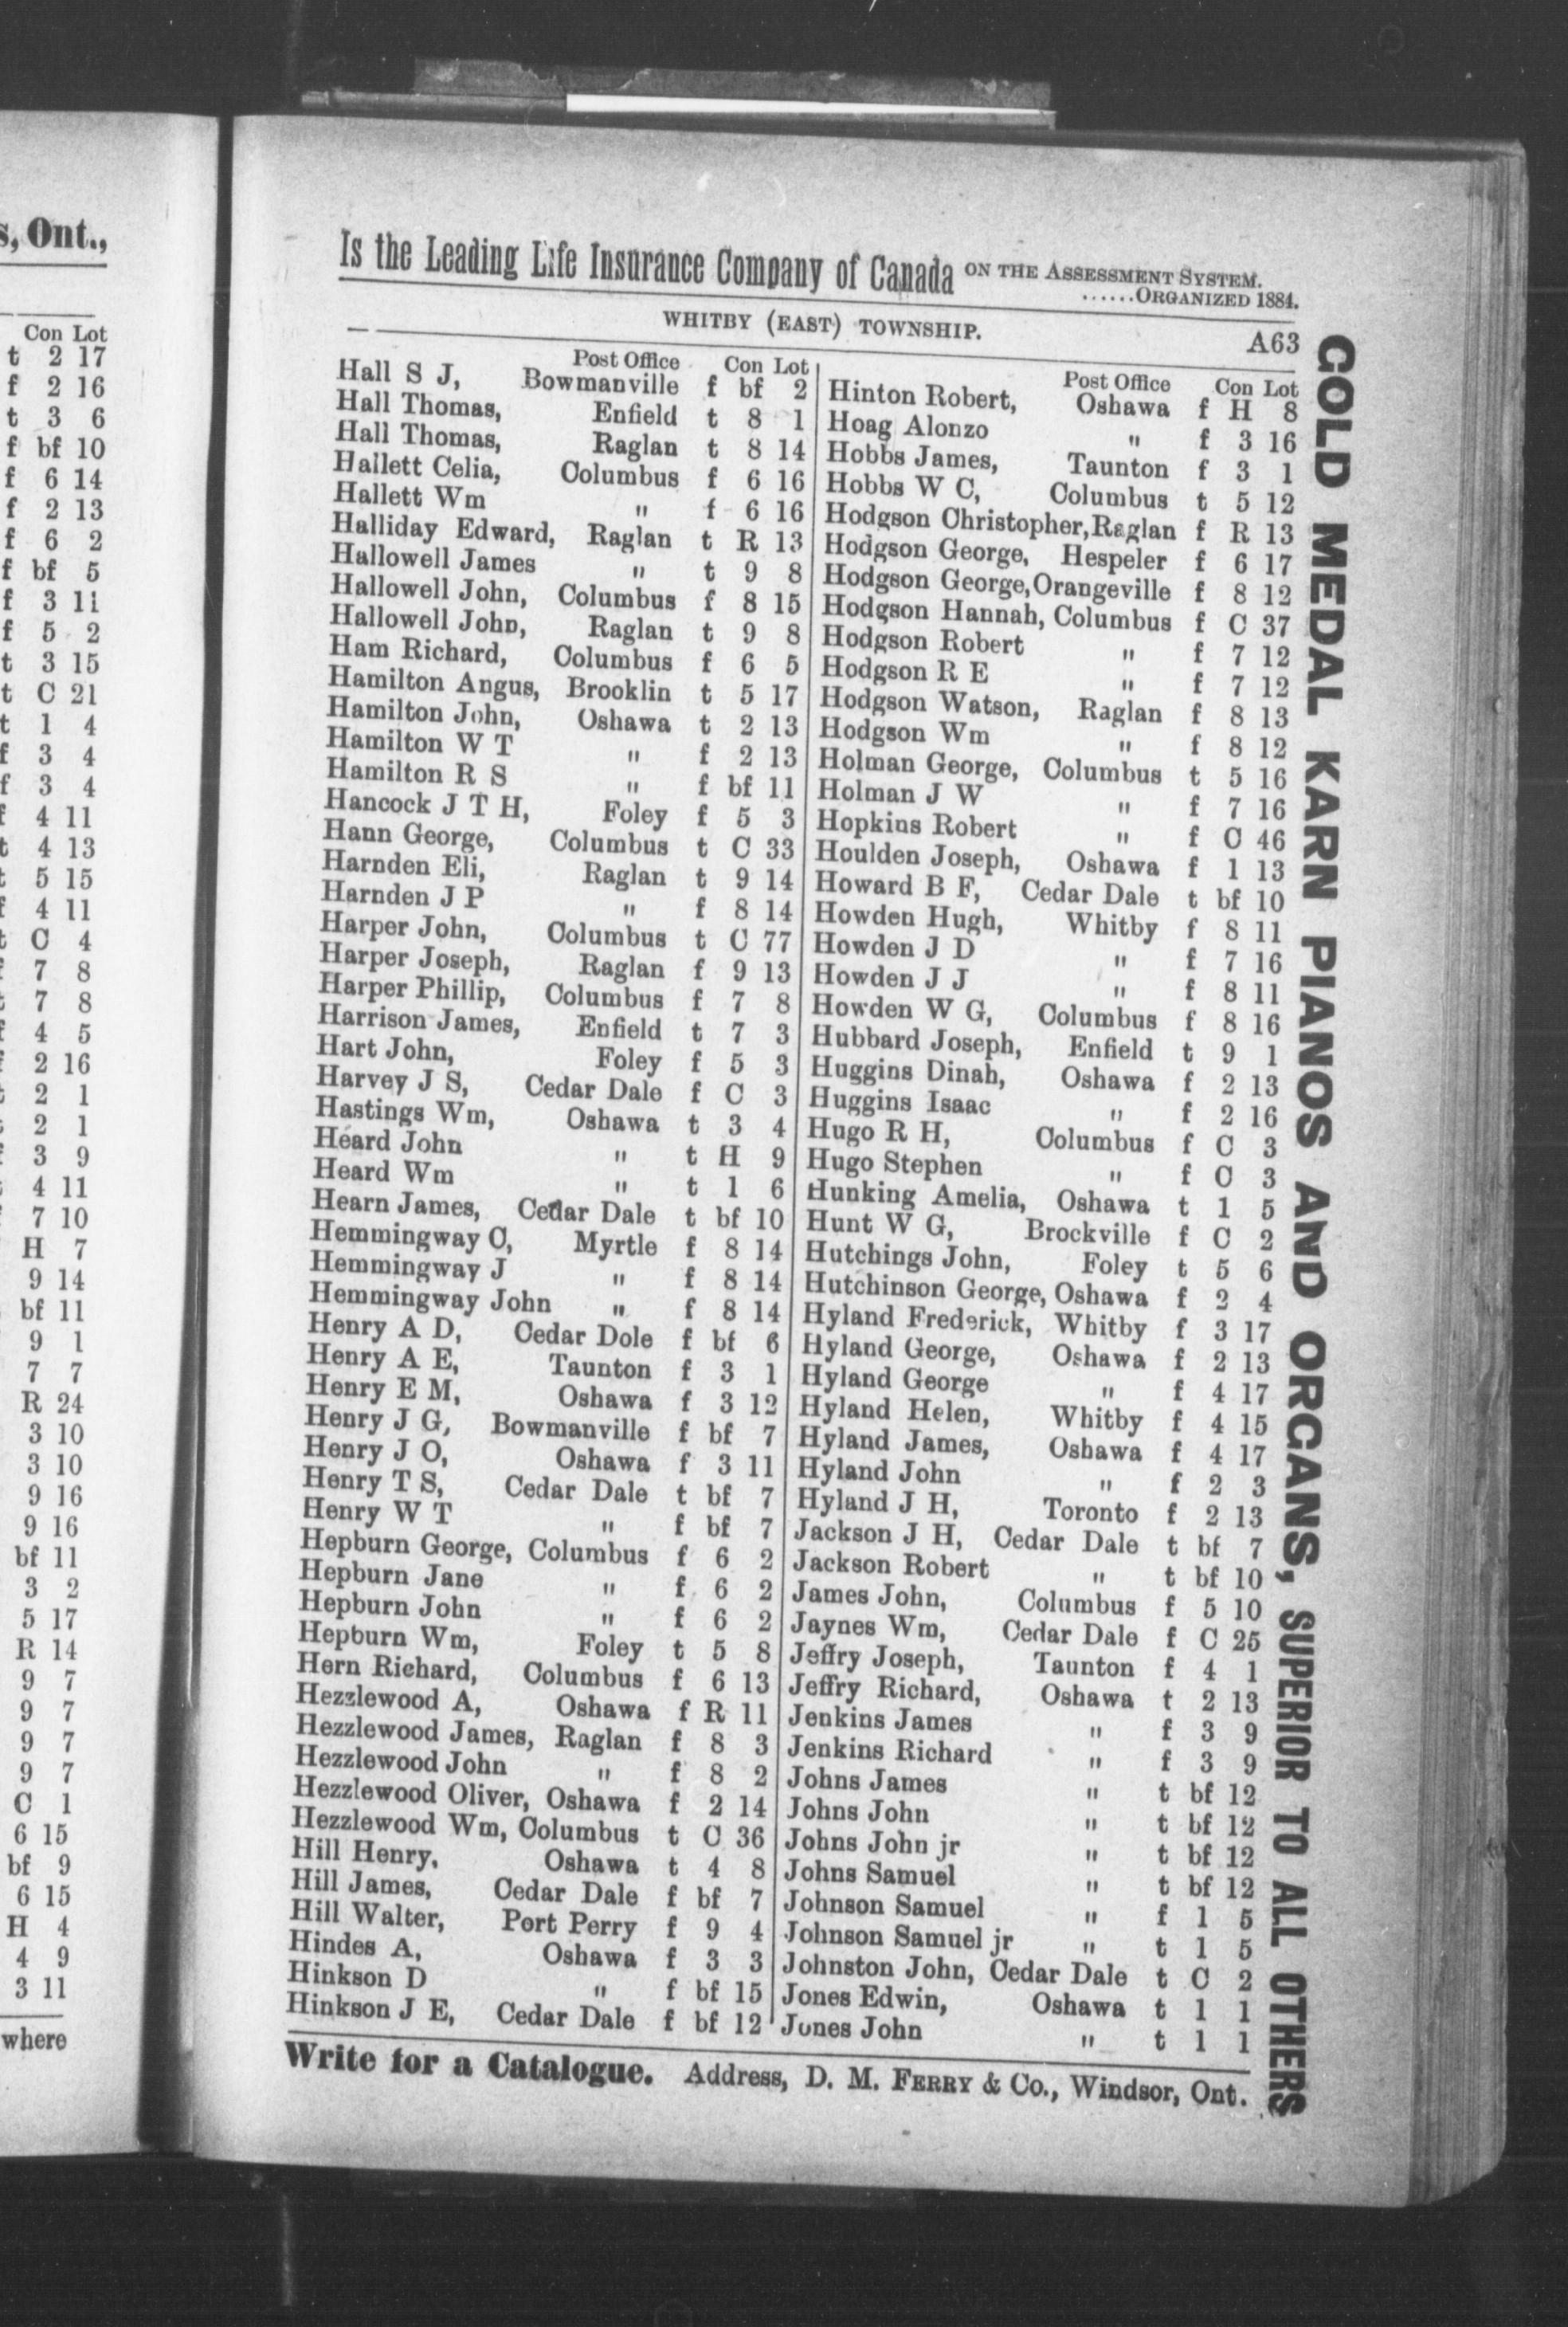 s, Ont.,
Con Lot
t 2 17
f 2 16
t 3 6
f bf 10
f 6 14
f 2 13
f 6 2
f bf 5
f 3 11
f 5 2
t 3 15
t C 21
t 1 4
f 3 4
f 3 4
f 4 11
t 4 13
t 5 15
f 4 11
t C 4
f 7 8
t 7 8
f 4 5
f 2 16
2 1
2 1
f 3 9
4 11
7 10
H 7
9 14
bf 11
9 1
7 7
R 24
3 10
3 10
9 16
9 16
bf 11
3 2
5 17
R 14
9 7
9 7
9 7
9 7
C 1
6 15
bf 9
6 15
H 4
4 9
3 11
where
Is the Leading Life Insurance Company of Canada ON THE ASSESSMENT SYSTEM.
......ORGANIZED 1884.
WHITBY (EAST) TOWNSHIP. A63
Post Office Con Lot
Hall S J, Bowmanville f bf 2
Hall Thomas, Enfield t 8 1
Hall Thomas, Raglan t 8 14
Hallett Celia, Columbus f 6 16
Hallett Wm " f 6 16
Halliday Edward, Raglan t R 13
Hallowell James " t 9 8
Hallowell John, Columbus f 8 15
Hallowell John, Raglan t 9 8
Ham Richard, Columbus f 6 5
Hamilton Angus, Brooklin t 5 17
Hamilton John, Oshawa t 2 13
Hamilton W T " f 2 13
Hamilton R S " f bf 11
Hancock J T H, Foley f 5 3
Hann George, Columbus t C 33
Harnden Eli, Raglan t 9 14
Harnden J P " f 8 14
Harper John, Columbus t C 77
Harper Joseph, Raglan f 9 13
Harper Phillip, Columbus f 7 8
Harrison James, Enfield t 7 3
Hart John, Foley f 5 3
Harvey J S, Cedar Dale f C 3
Hastings Wm, Oshawa t 3 4
Heard John " t H 9
Heard Wm " t 1 6
Hearn James, Cedar Dale t bf 10
Hemmingway C, Myrtle f 8 14
Hemmingway J " f 8 14
Hemmingway John " f 8 14
Henry A D, Cedar Dole f bf 6
Henry A E, Taunton f 3 1
Henry E M, Oshawa f 3 12
Henry J G, Bowmanville f bf 7
Henry J O, Oshawa f 3 11
Henry T S, Cedar Dale t bf 7
Henry W T " f bf 7
Hepburn George, Columbus f 6 2
Hepburn Jane " f 6 2
Hepburn John " f 6 2
Hepburn Wm, Foley t 5 8
Hern Richard, Columbus f 6 13
Hezzlewood A, Oshawa f R 11
Hezzlewood James, Raglan f 8 3
Hezzlewood John " f 8 2
Hezzlewood Oliver, Oshawa f 2 14
Hezzlewood Wm, Columbus t C 36
Hill Henry, Oshawa t 4 8
Hill James, Cedar Dale f bf 7
Hill Walter, Port Perry f 9 4
Hindes A, Oshawa f 3 3
Hinkson D " f bf 15
Hinkson J E, Cedar Dale f bf 12
Post Office Con Lot
Hinton Robert, Oshawa f H 8
Hoag Alonzo " f 3 16
Hobbs James, Taunton f 3 1
Hobbs W C, Columbus t 5 12
Hodgson Christopher, Raglan f R 13
Hodgson George, Hespeler f 6 17
Hodgson George, Orangeville f 8 12
Hodgson Hannah, Columbus f C 37
Hodgson Robert " f 7 12
Hodgson R E " f 7 12
Hodgson Watson, Raglan f 8 13
Hodgson Wm " f 8 12
Holman George, Columbus t 5 16
Holman J W " f 7 16
Hopkins Robert " f C 46
Houlden Joseph, Oshawa f 1 13
Howard B F, Cedar Dale t bf 10
Howden Hugh, Whitby f 8 11
Howden J D " f 7 16
Howden J J " f 8 11
Howden W G, Columbus f 8 16
Hubbard Joseph, Enfield t 9 1
Huggins Dinah, Oshawa f 2 13
Huggins Isaac " f 2 16
Hugo R H, Columbus f C 3
Hugo Stephen " f C 3
Hunking Amelia, Oshawa t 1 5
Hunt W G, Brockville f C 2
Hutchings John, Foley t 5 6
Hutchinson George, Oshawa f 2 4
Hyland Frederick, Whitby f 3 17
Hyland George, Oshawa f 2 13
Hyland George " f 4 17
Hyland Helen, Whitby f 4 15
Hyland James, Oshawa f 4 17
Hyland John " f 2 3
Hyland J H, Toronto f 2 13
Jackson J H, Cedar Dale t bf 7
Jackson Robert " t bf 10
James John, Columbus f 5 10
Jaynes Wm, Cedar Dale f C 25
Jeffry Joseph, Taunton f 4 1
Jeffry Richard, Oshawa t 2 13
Jenkins James " f 3 9
Jenkins Richard " f 3 9
Johns James " t bf 12
Johns John " t bf 12
Johns John jr " t bf 12
Johns Samuel " t bf 12
Johnson Samuel " f 1 5
Johnson Samuel jr " t 1 5
Johnston John, Cedar Dale t C 2
Jones Edwin, Oshawa t 1 1
Jones John " t 1 1
Write for a Catalogue. Address, D. M. FERRY & Co., Windsor, Ont.
GOLD MEDAL KARN PIANOS AND ORGANS, SUPERIOR TO ALL OTHERS